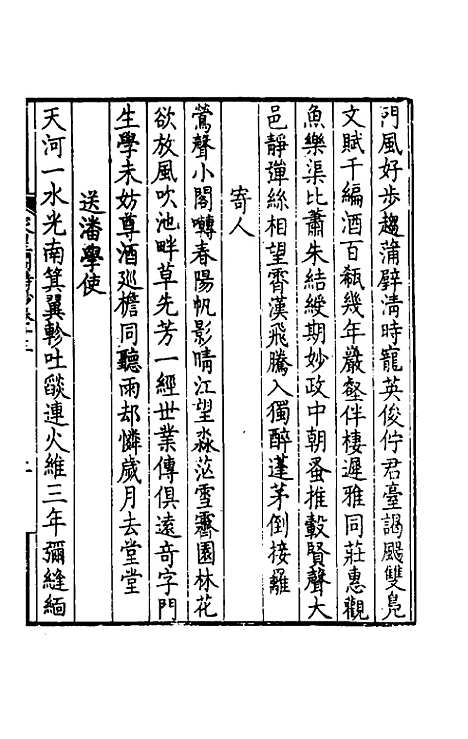 門風好步趨蒲壁清時寵英俊佇君臺謁颺雙鳧
文賦千編酒百瓻幾年巖壑伴棲遲雅同莊惠觀
魚樂渠比蕭朱結綬期妙政中朝蚤推轂賢聲大
邑靜彈絲相望霄漢飛騰入獨醉蓬茅倒接䍦
寄人
鶯聲小閣囀春陽帆影晴江望淼茫雪霽園林花
欲放風吹池畔草先芳一經世業傳俱遠奇字門
生學未妨尊酒廵檐同聽雨却憐歲月去堂堂
送潘學使
天河一水光南箕翼軫吐燄連火維三年彌縫緬